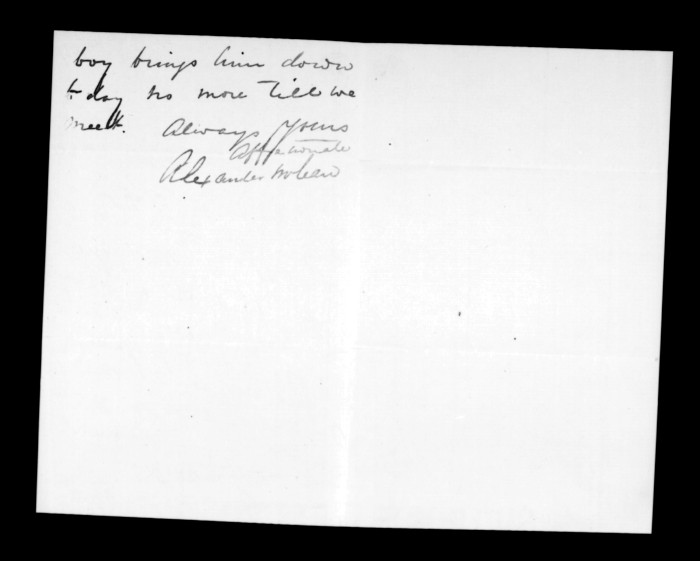 boy brings him down
to day no more till we
meet.
Always Yours
Affectionate
Alexander McLean